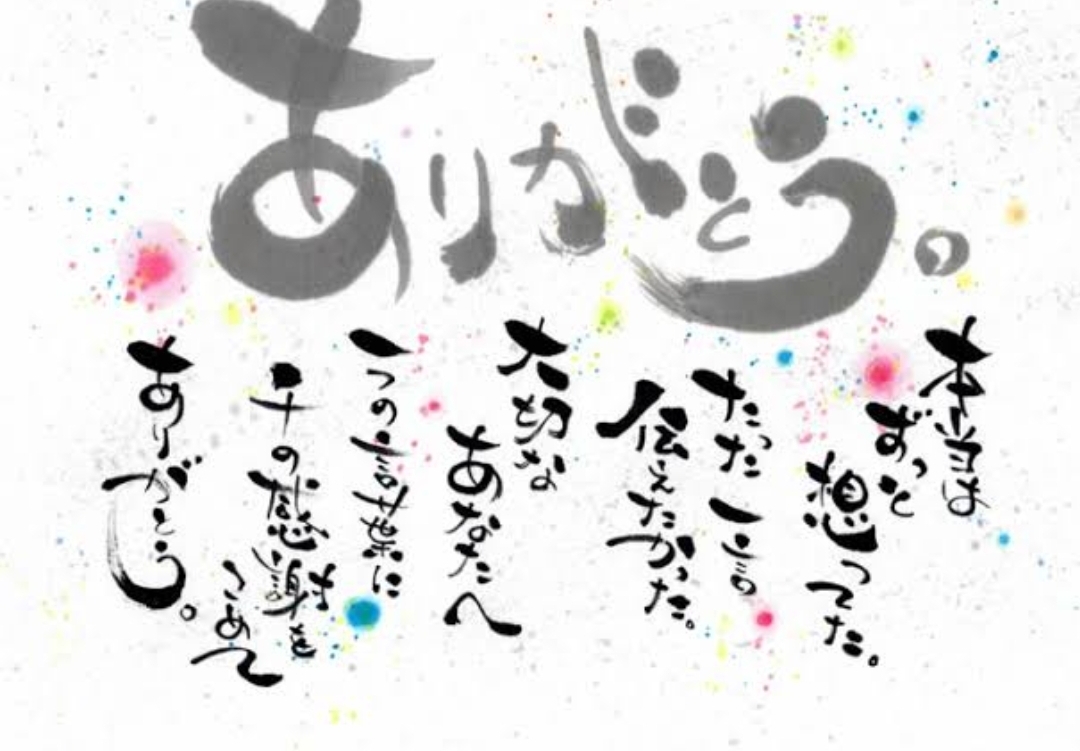 ありがとう。
本当は
ずっと
想ってた。
たった一言
伝えたかった。
大切な
あなたへ
一つの言葉に
千の感謝を
こめて
ありがとう。